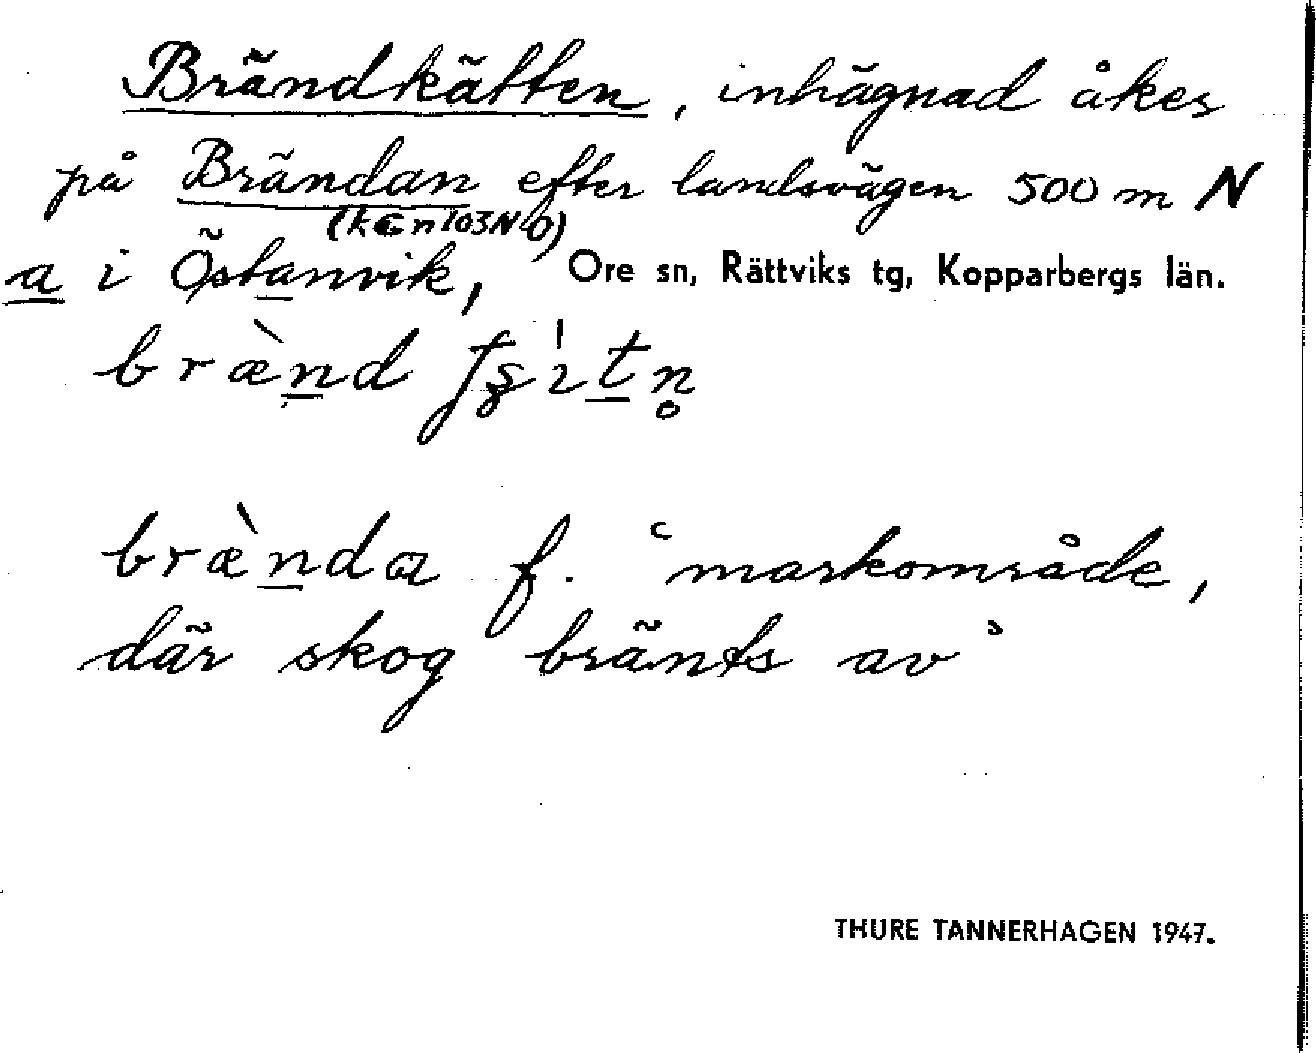 Brändkätten, inhägnad åker
på Brändan efter landsvägen 500 m N
(ken 103 NO)
a i Östanvik, Ore sn, Rättviks tg, Kopparbergs län.
bræ̀nd
bræ̀nda f. ʿmarkområde,
där skog bränts avʾ
THURE TANNERHAGEN 1947.